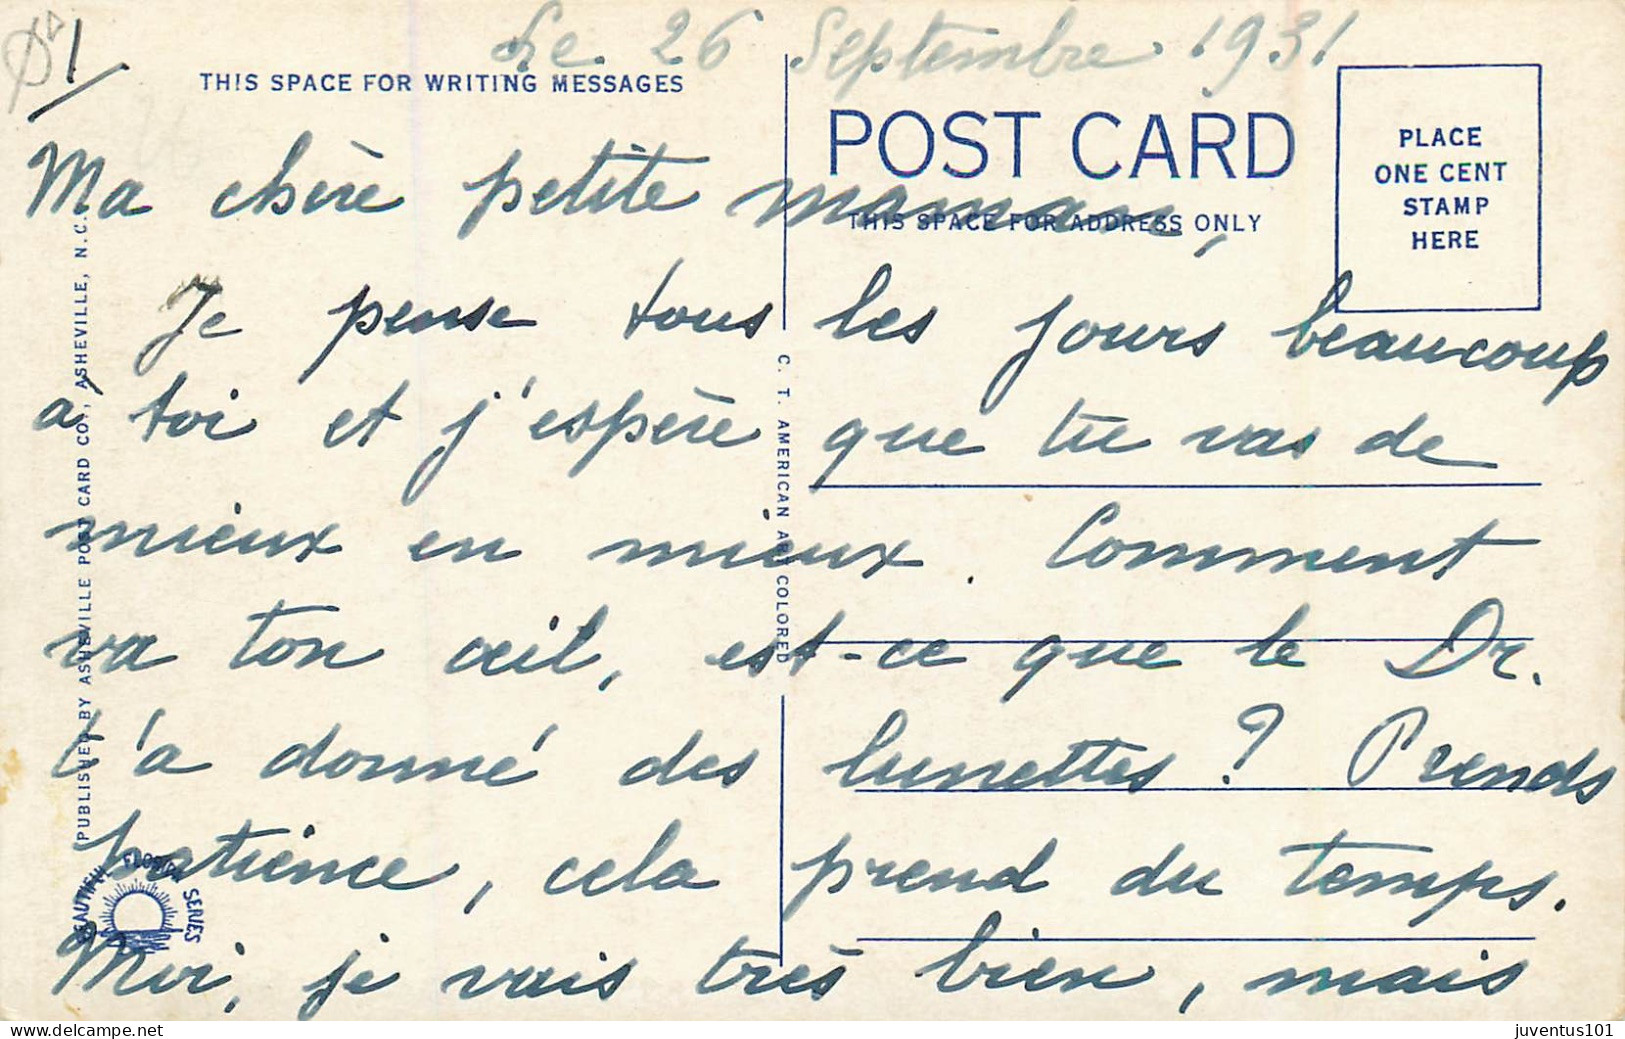 Le 26 Septembre 1931
THIS SPACE FOR WRITING MESSAGES
POST CARD
THIS SPACE FOR ADDRESS ONLY
PLACE
ONE CENT
STAMP
HERE
Ma chère petite maman,
Je pense tous les jours beaucoup
à toi et j'espère que tu vas de
mieux en mieux. Comment
va ton œil, est-ce que le Dr.
t'a donné des lunettes ? Prends
patience, cela prend du temps.
Moi, je vais très bien, mais
PUBLISHED BY ASHEVILLE POST CARD CO., ASHEVILLE, N.C.
C. T. AMERICAN ART COLORED
BEAUTIFUL FLORIDA SERIES
juventus101